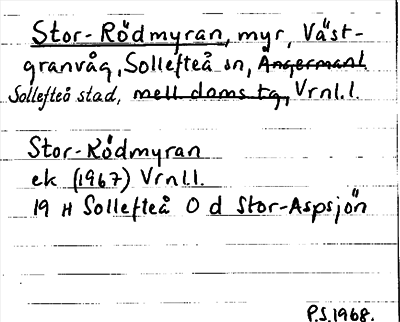 Stor-Rödmyran, myr, Väst-
granvåg, Sollefteå sn, Ångermanl.
Sollefteå stad, mell doms tg, Vrnl.l.
Stor-Rödmyran
ek (1967) Vrnl.l.
19 H Sollefteå O d Stor-Aspsjön
P.S.1968.